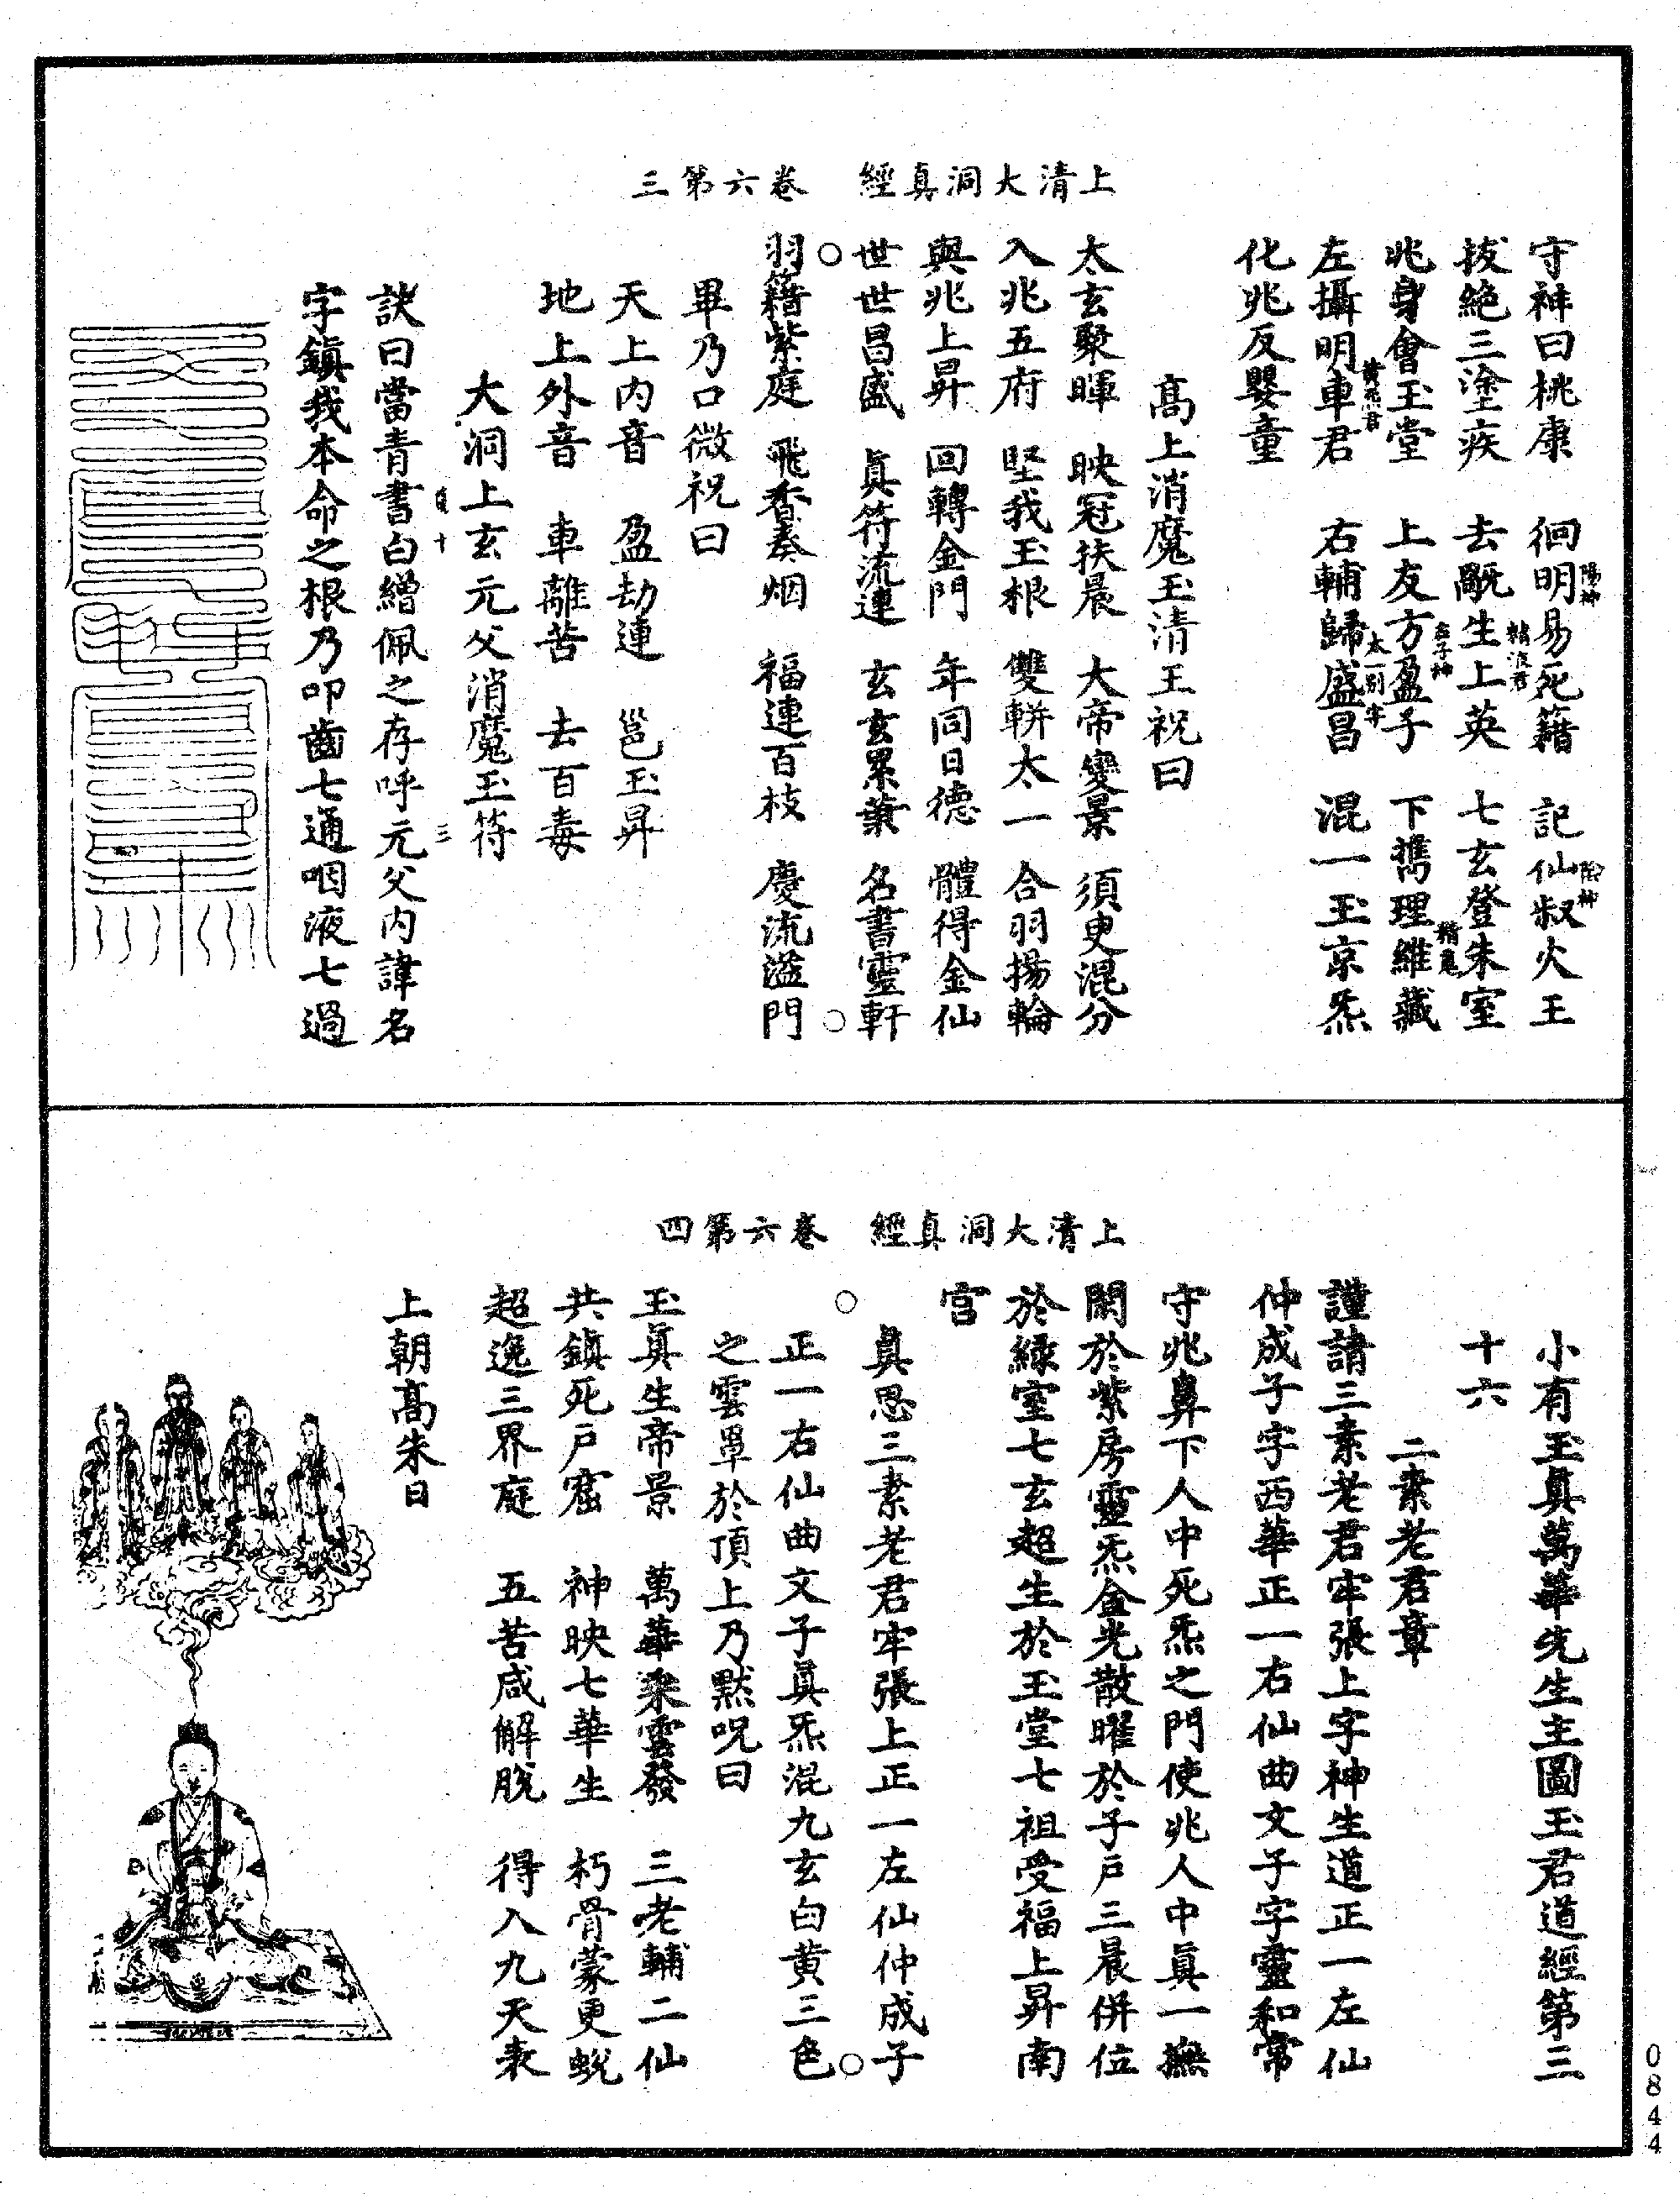 上清大洞真經　卷六第三
守神曰桃康　徊明易死籍　記仙叔火王
陽神　陰神
拔絕三塗疾　去翫生上英　七玄登朱室
兆身會玉堂　上友方盈子　下攜理維藏
左攝明車君　右輔歸盛昌　混一玉京炁
黃炁君　太一別字
化兆反嬰童
高上消魔玉清王祝曰
太玄聚暉　映冠扶晨　大帝變景　須臾混分
入兆五府　堅我玉根　雙軿太一　合羽揚輪
與兆上昇　回轉金門　年同日德　體得金仙
世世昌盛　真符流連　玄玄累葉　名書靈軒
羽籍紫庭　飛香奏烟　福連百枝　慶流溢門
畢乃口微祝曰
天上內音　盈劫運　邕玉昇
地上外音　車離苦　去百毒
大洞上玄元父消魔玉符
訣曰當青書白繒佩之存呼元父內諱名
字鎮我本命之根乃叩齒七通咽液七過
上清大洞真經　卷六第四
小有玉真萬華先生主圖玉君道經第三
十六
二素老君章
謹請三素老君牢張上字神生道正一左仙
仲成子字西華正一右仙曲文子字靈和常
守兆鼻下人中死炁之門使兆人中真一撫
關於紫房靈炁金光散曜於子戶三晨併位
於綠室七玄超生於玉堂七祖受福上昇南
宮
真思三素老君牢張上正一左仙仲成子
正一右仙曲文子真炁混九玄白黃三色
之雲罩於頂上乃默咒曰
玉真生帝景　萬華乘雲發　三老輔二仙
共鎮死戶窟　神映七華生　朽骨蒙更蛻
超逸三界庭　五苦咸解脫　得入九天表
上朝高朱日
0844